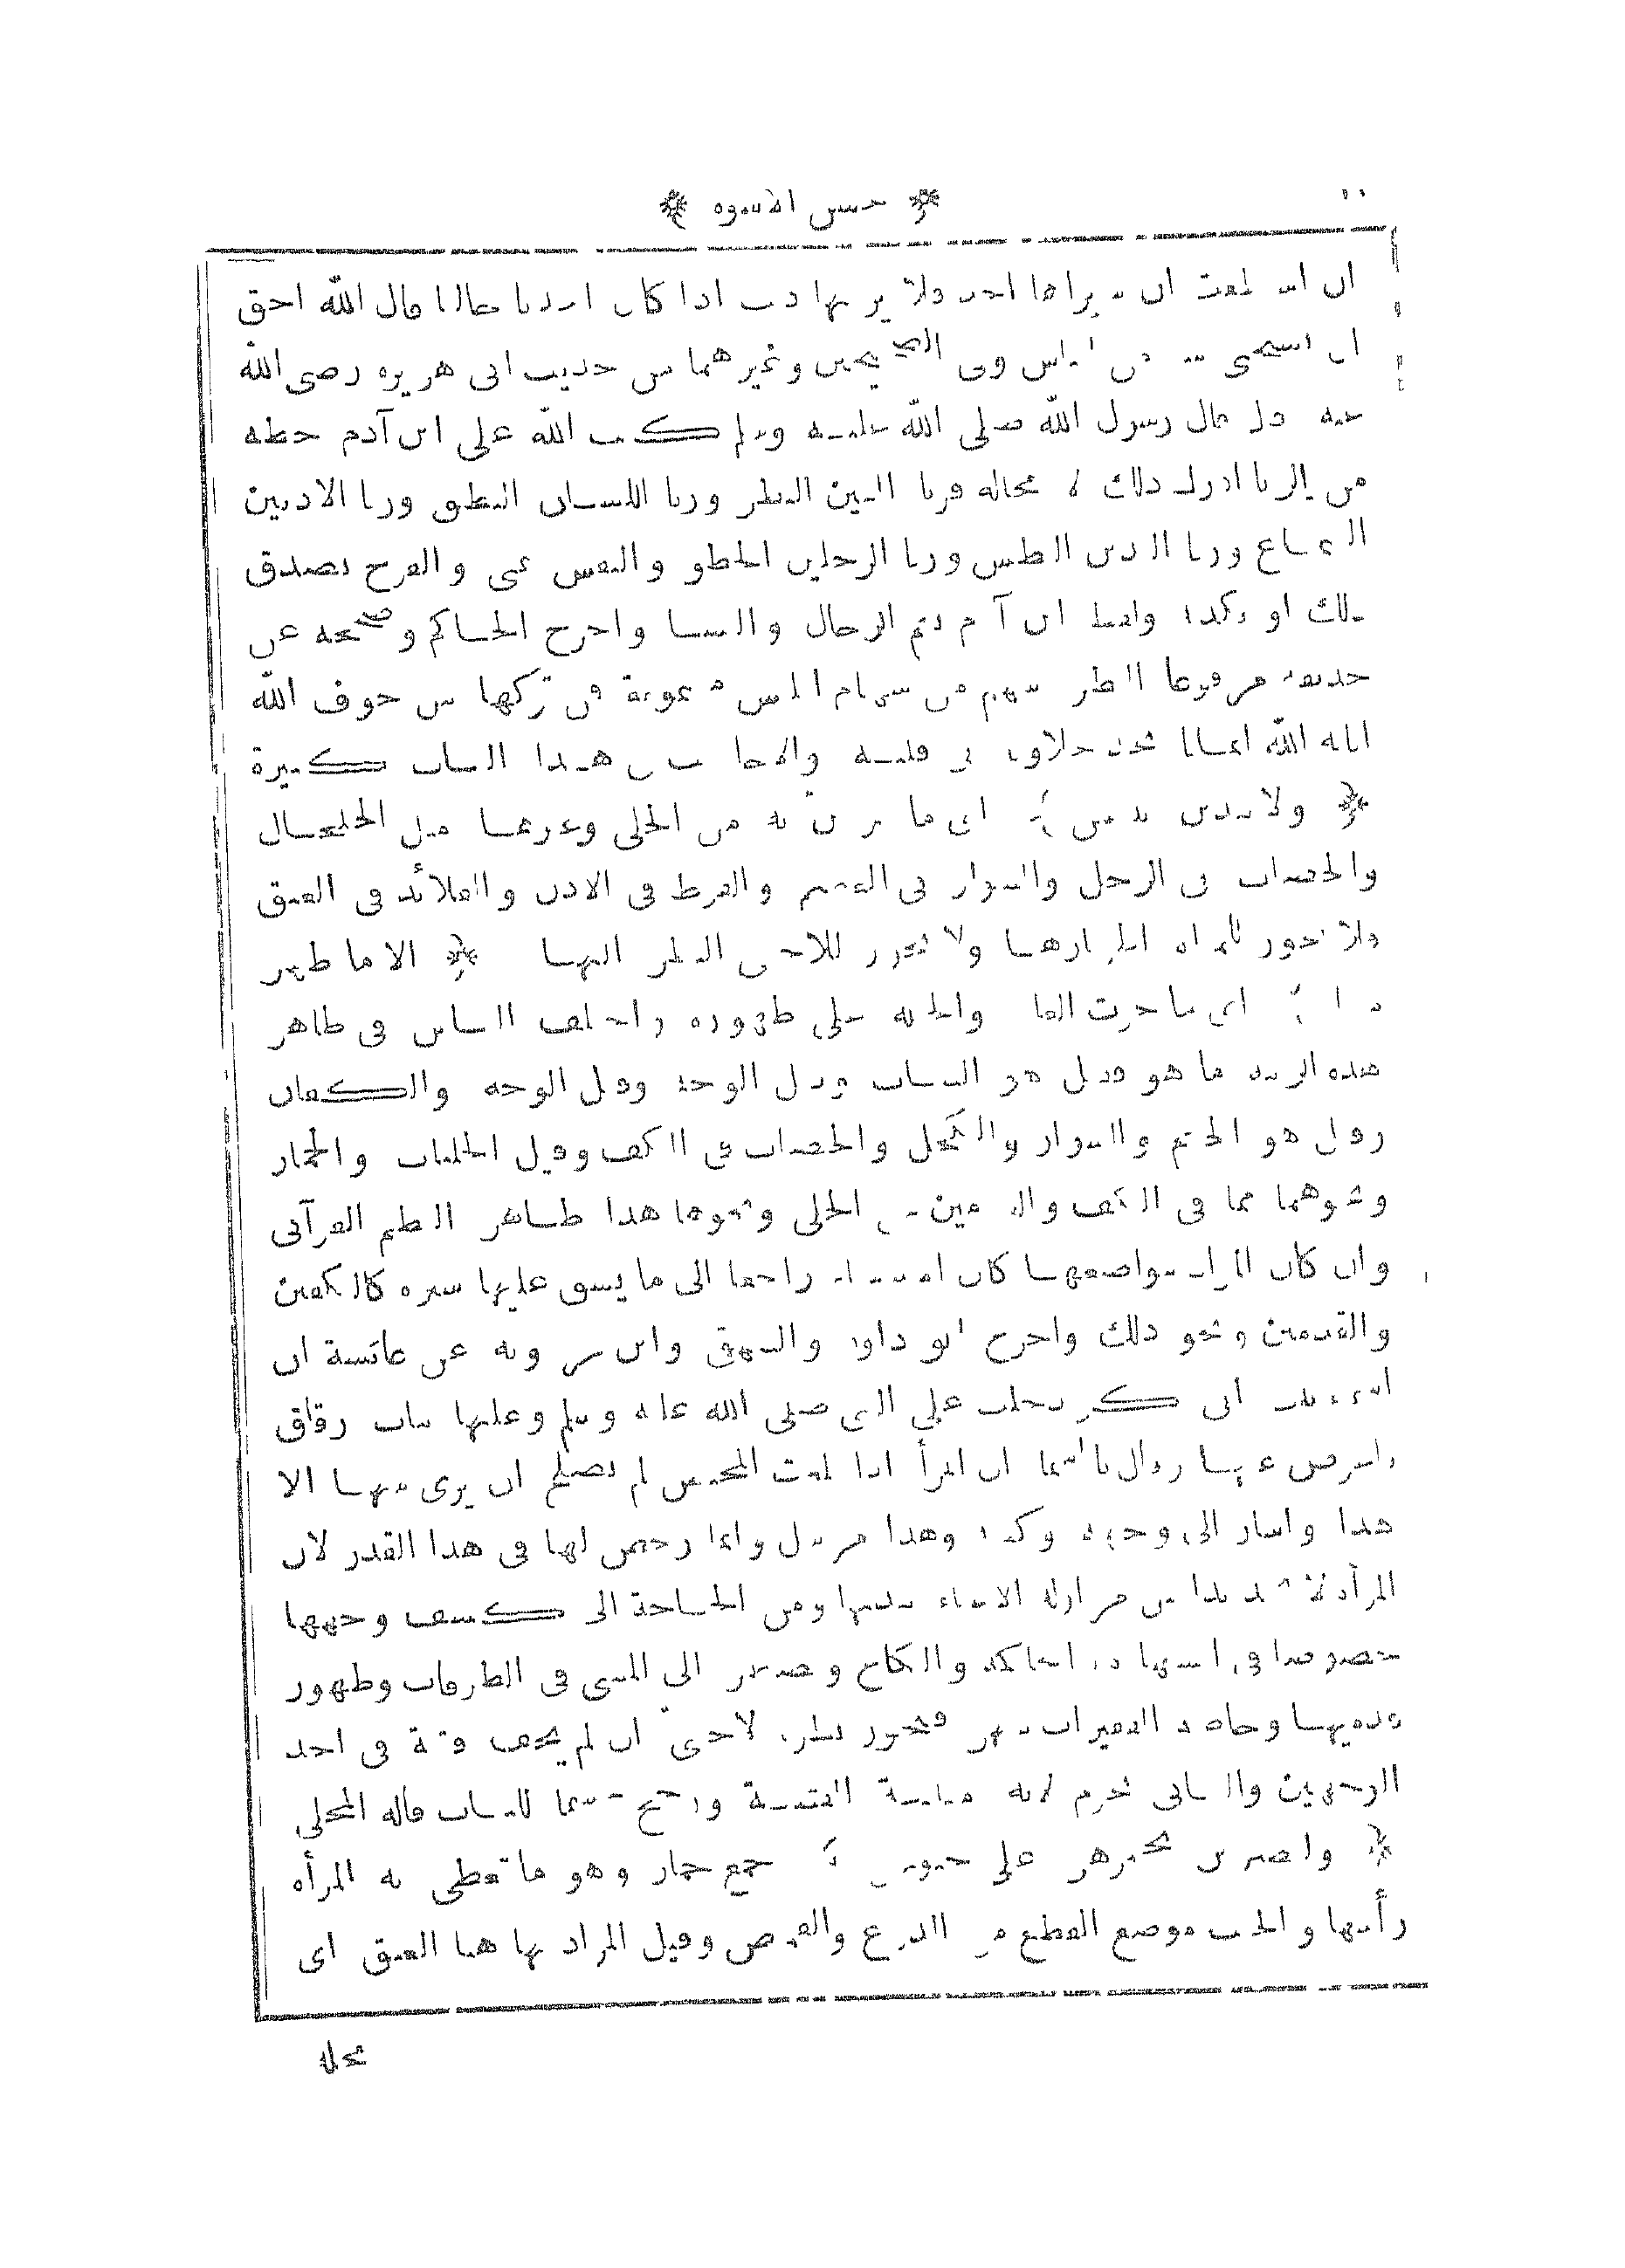 حسن الاسوة
ان استطعت ان لا يراها احد فلا يرينها قلت اذا كان احدنا خاليا قال الله احق
ان يستحيى منه من الناس وفى الصحيحين وغيرهما من حديث ابى هريرة رضى الله
عنه قال قال رسول الله صلى الله عليه وسلم كتب الله على ابن آدم حظه
من الزنا ادرك ذلك لا محالة فزنا العين النظر وزنا اللسان النطق وزنا الاذنين
السماع وزنا اليدين البطش وزنا الرجلين الخطو والنفس تمنى والفرج يصدق
ذلك او يكذبه والنساء واخرج الحاكم وصححه عن
حذيفة مرفوعا النظر سهم من سهام ابليس مسمومة فمن تركها من خوف الله
اثابه الله ايمانا يجد حلاوته فى قلبه والاحاديث فى هذا الباب كثيرة
ولا يبدين زينتهن اى ما يتزين به من الحلى وغيرها مثل الخلخال
والخضاب فى الرجل والسوار فى المعصم والقرط فى الاذن والقلائد فى العنق
فلا يجوز للمرأة اظهارها ولا يجوز للاجنبى النظر اليها الا ما ظهر
منها اى ما جرت العادة والجبلة على ظهوره واختلف الناس فى ظاهر
هذه الزينة ما هو فقيل هو الثياب وقيل الوجه وقيل الوجه والكفان
وقيل هو الخاتم والسوار والكحل والخضاب فى الكف وقيل الجلباب والخمار
ونحوهما مما فى الكف والقدمين من الحلى ونحوها هذا ظاهر النظم القرآنى
وان كان المراد مواضعها كان الاستثناء راجعا الى ما يشق عليها ستره كالكفين
والقدمين ونحو ذلك واخرج ابو داود والبيهقى وابن مردويه عن عائشة ان
اسماء بنت ابى بكر دخلت على النبى صلى الله عليه وسلم وعليها ثياب رقاق
فاعرض عنها وقال يا اسماء ان المرأة اذا بلغت المحيض لم يصلح ان يرى منها الا
هذا واشار الى وجهه وكفه وهذا مرسل وانما رخص لها فى هذا القدر لان
المرأة لا تجد بدا من مزاولة الاشياء بيديها ومن الحاجة الى كشف وجهها
خصوصا فى الشهادة والمحاكمة والنكاح وتضطر الى المشى فى الطرقات وظهور
قدميها وخاصة الفقيرات منهن فيجوز نظره لاجنبى ان لم يخف فتنة فى احد
الوجهين والثانى يحرم لانه مظنة الفتنة ورجح حسما للباب قاله المحلى
وليضربن بخمرهن على جيوبهن جمع خمار وهو ما تغطى به المرأة
رأسها والجيب موضع القطع من الدرع والقميص وقيل المراد بها هنا العنق اى
محله